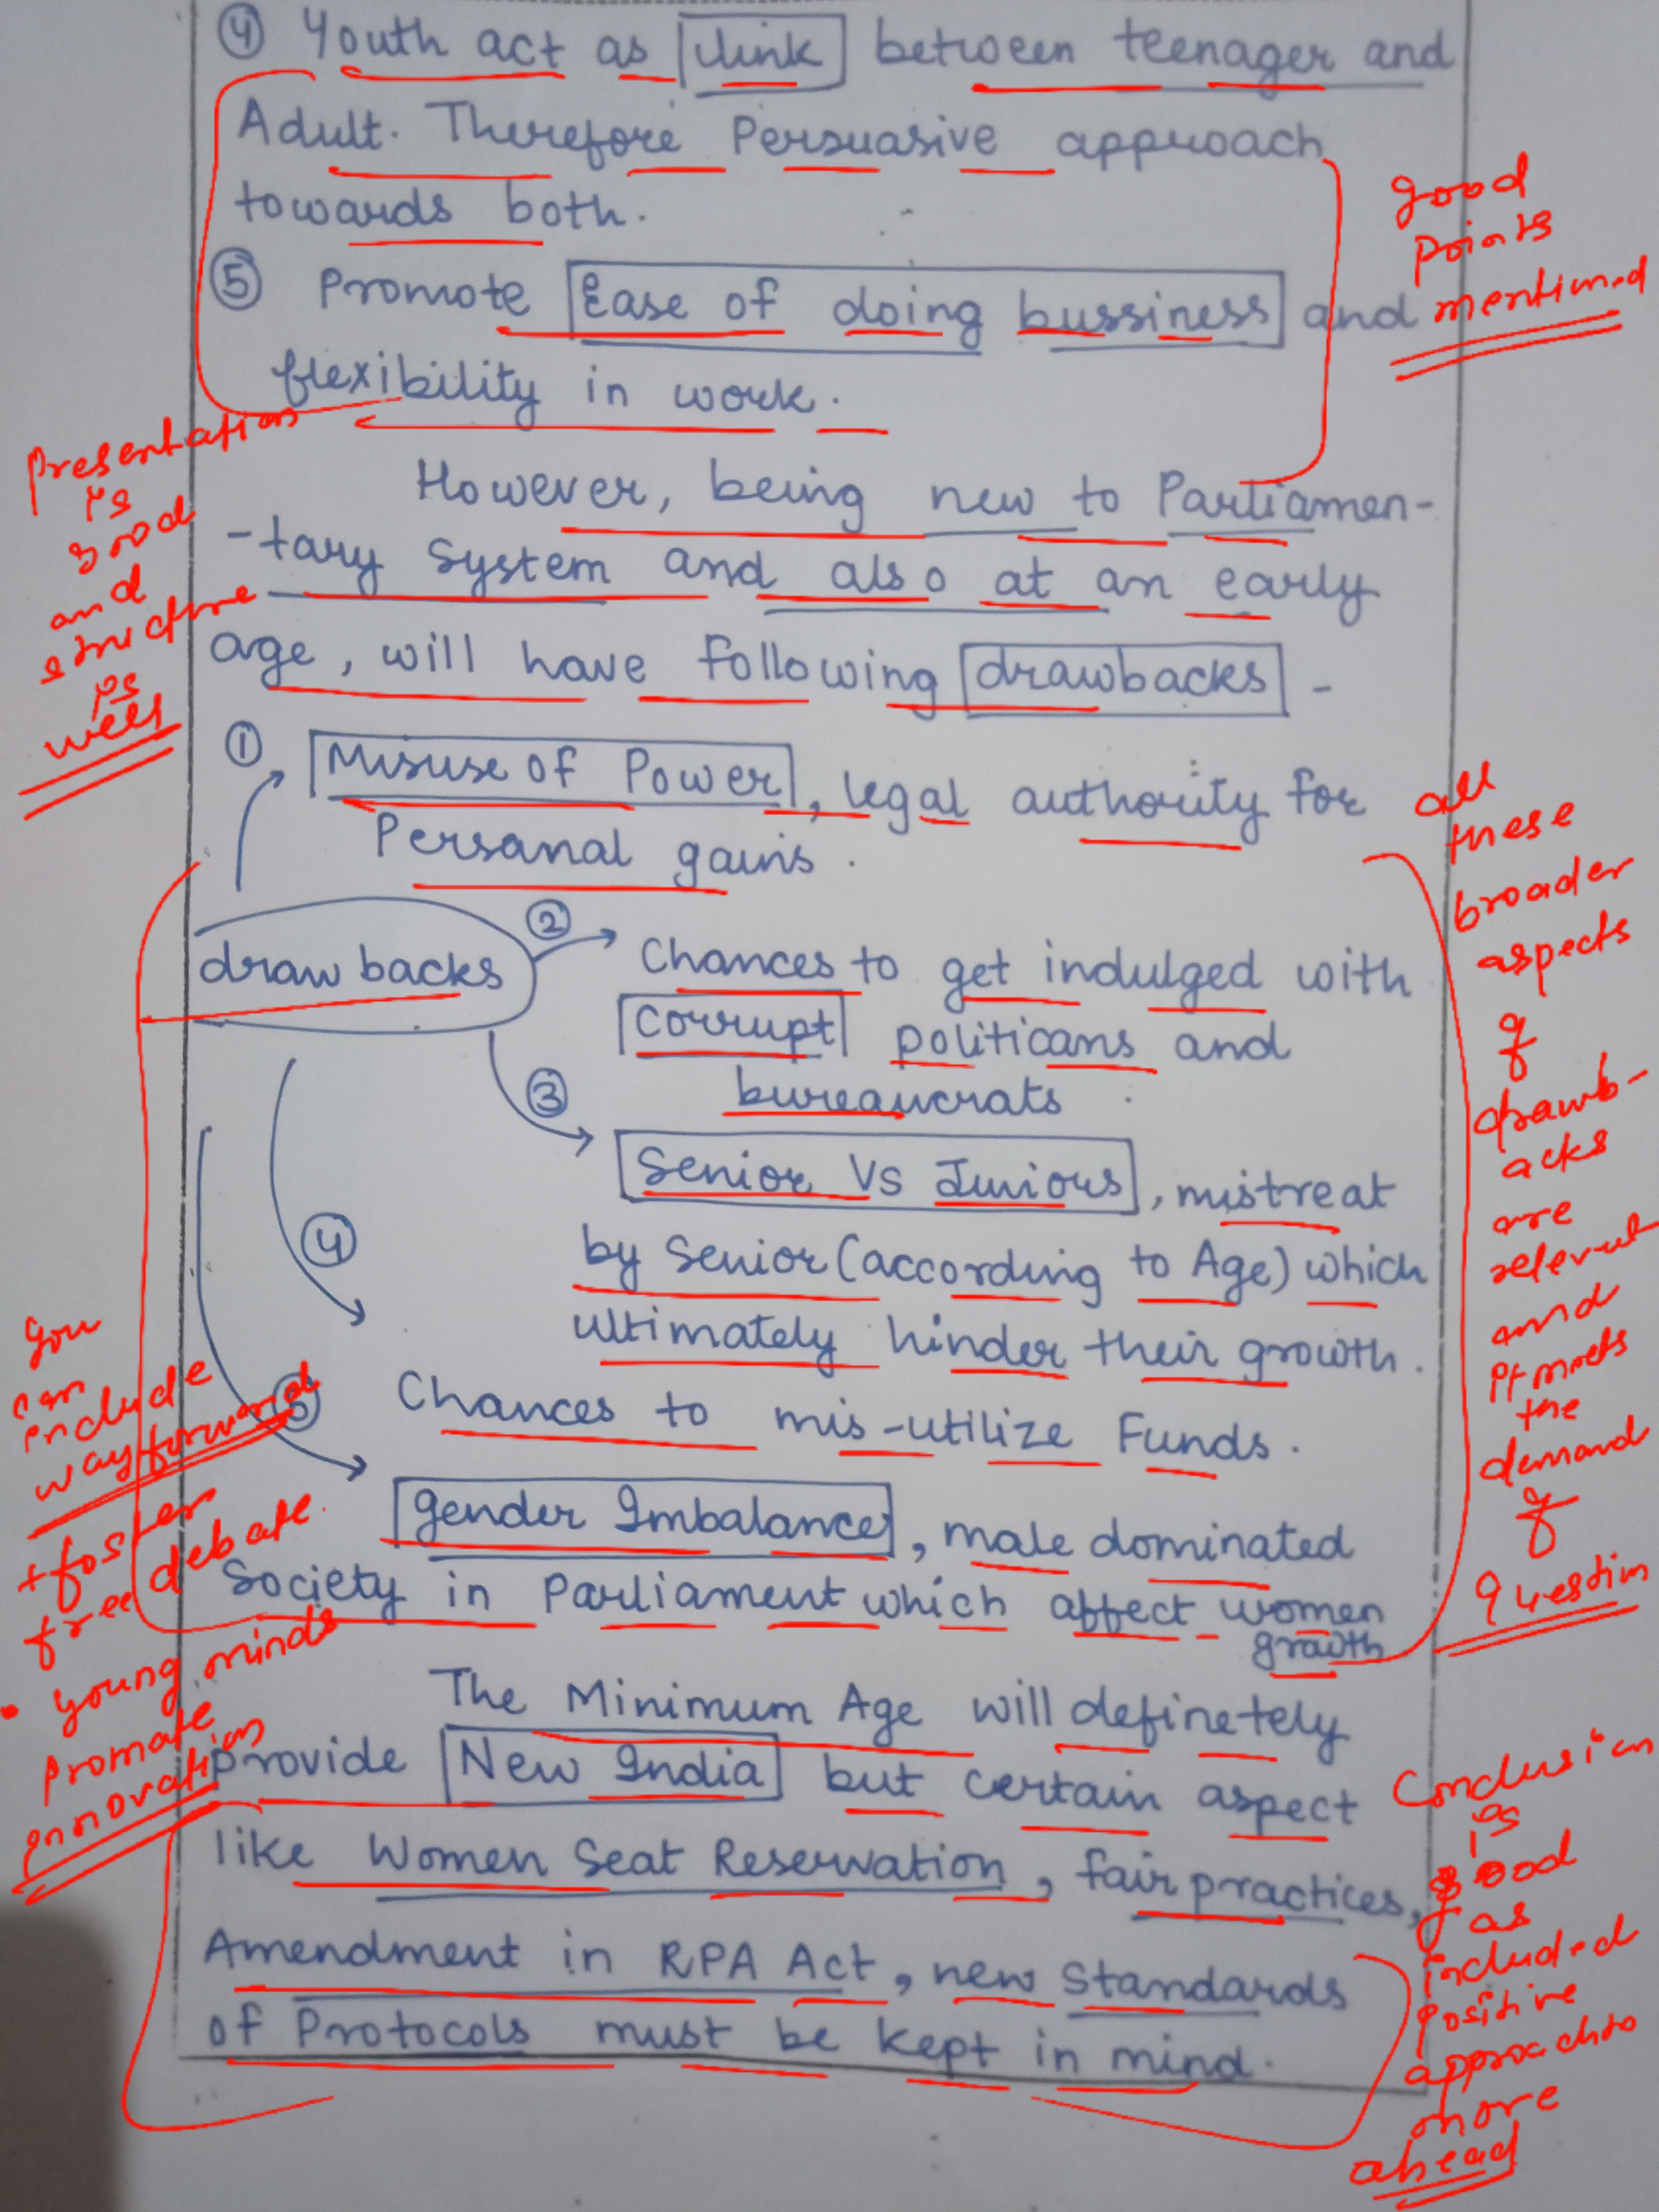 ④ Youth act as link between teenager and
Adult. Therefore Persuasive approach
towards both.
good
points
mentioned
⑤ Promote Ease of doing bussiness and
flexibility in work.
Presentation
is
good
and
structure
is
well
However, being new to Parliamen-
-tary system and also at an early
age, will have following drawbacks -
① Misuse of Power, legal authority for
Personal gains.
drawbacks
② Chances to get indulged with
corrupt politicans and
bureaucrats
③ Senior Vs Juniors, mistreat
by Senior (according to Age) which
ultimately hinder their growth.
④ Chances to mis-utilize Funds.
⑤ Gender Imbalance, male dominated
Society in Parliament which affect women
growth
all
these
broader
aspects
of
drawb-
acks
are
relevant
and
it meets
the
demand
of
question
you
can
include
way forward
+ foster
free debate.
• young minds
promote
innovation
The Minimum Age will definetely
provide New India but certain aspect
like Women Seat Reservation, fair practices,
Amendment in RPA Act, new standards
of Protocols must be kept in mind.
Conclusion
is
good
as
included
positive
approach to
more
ahead